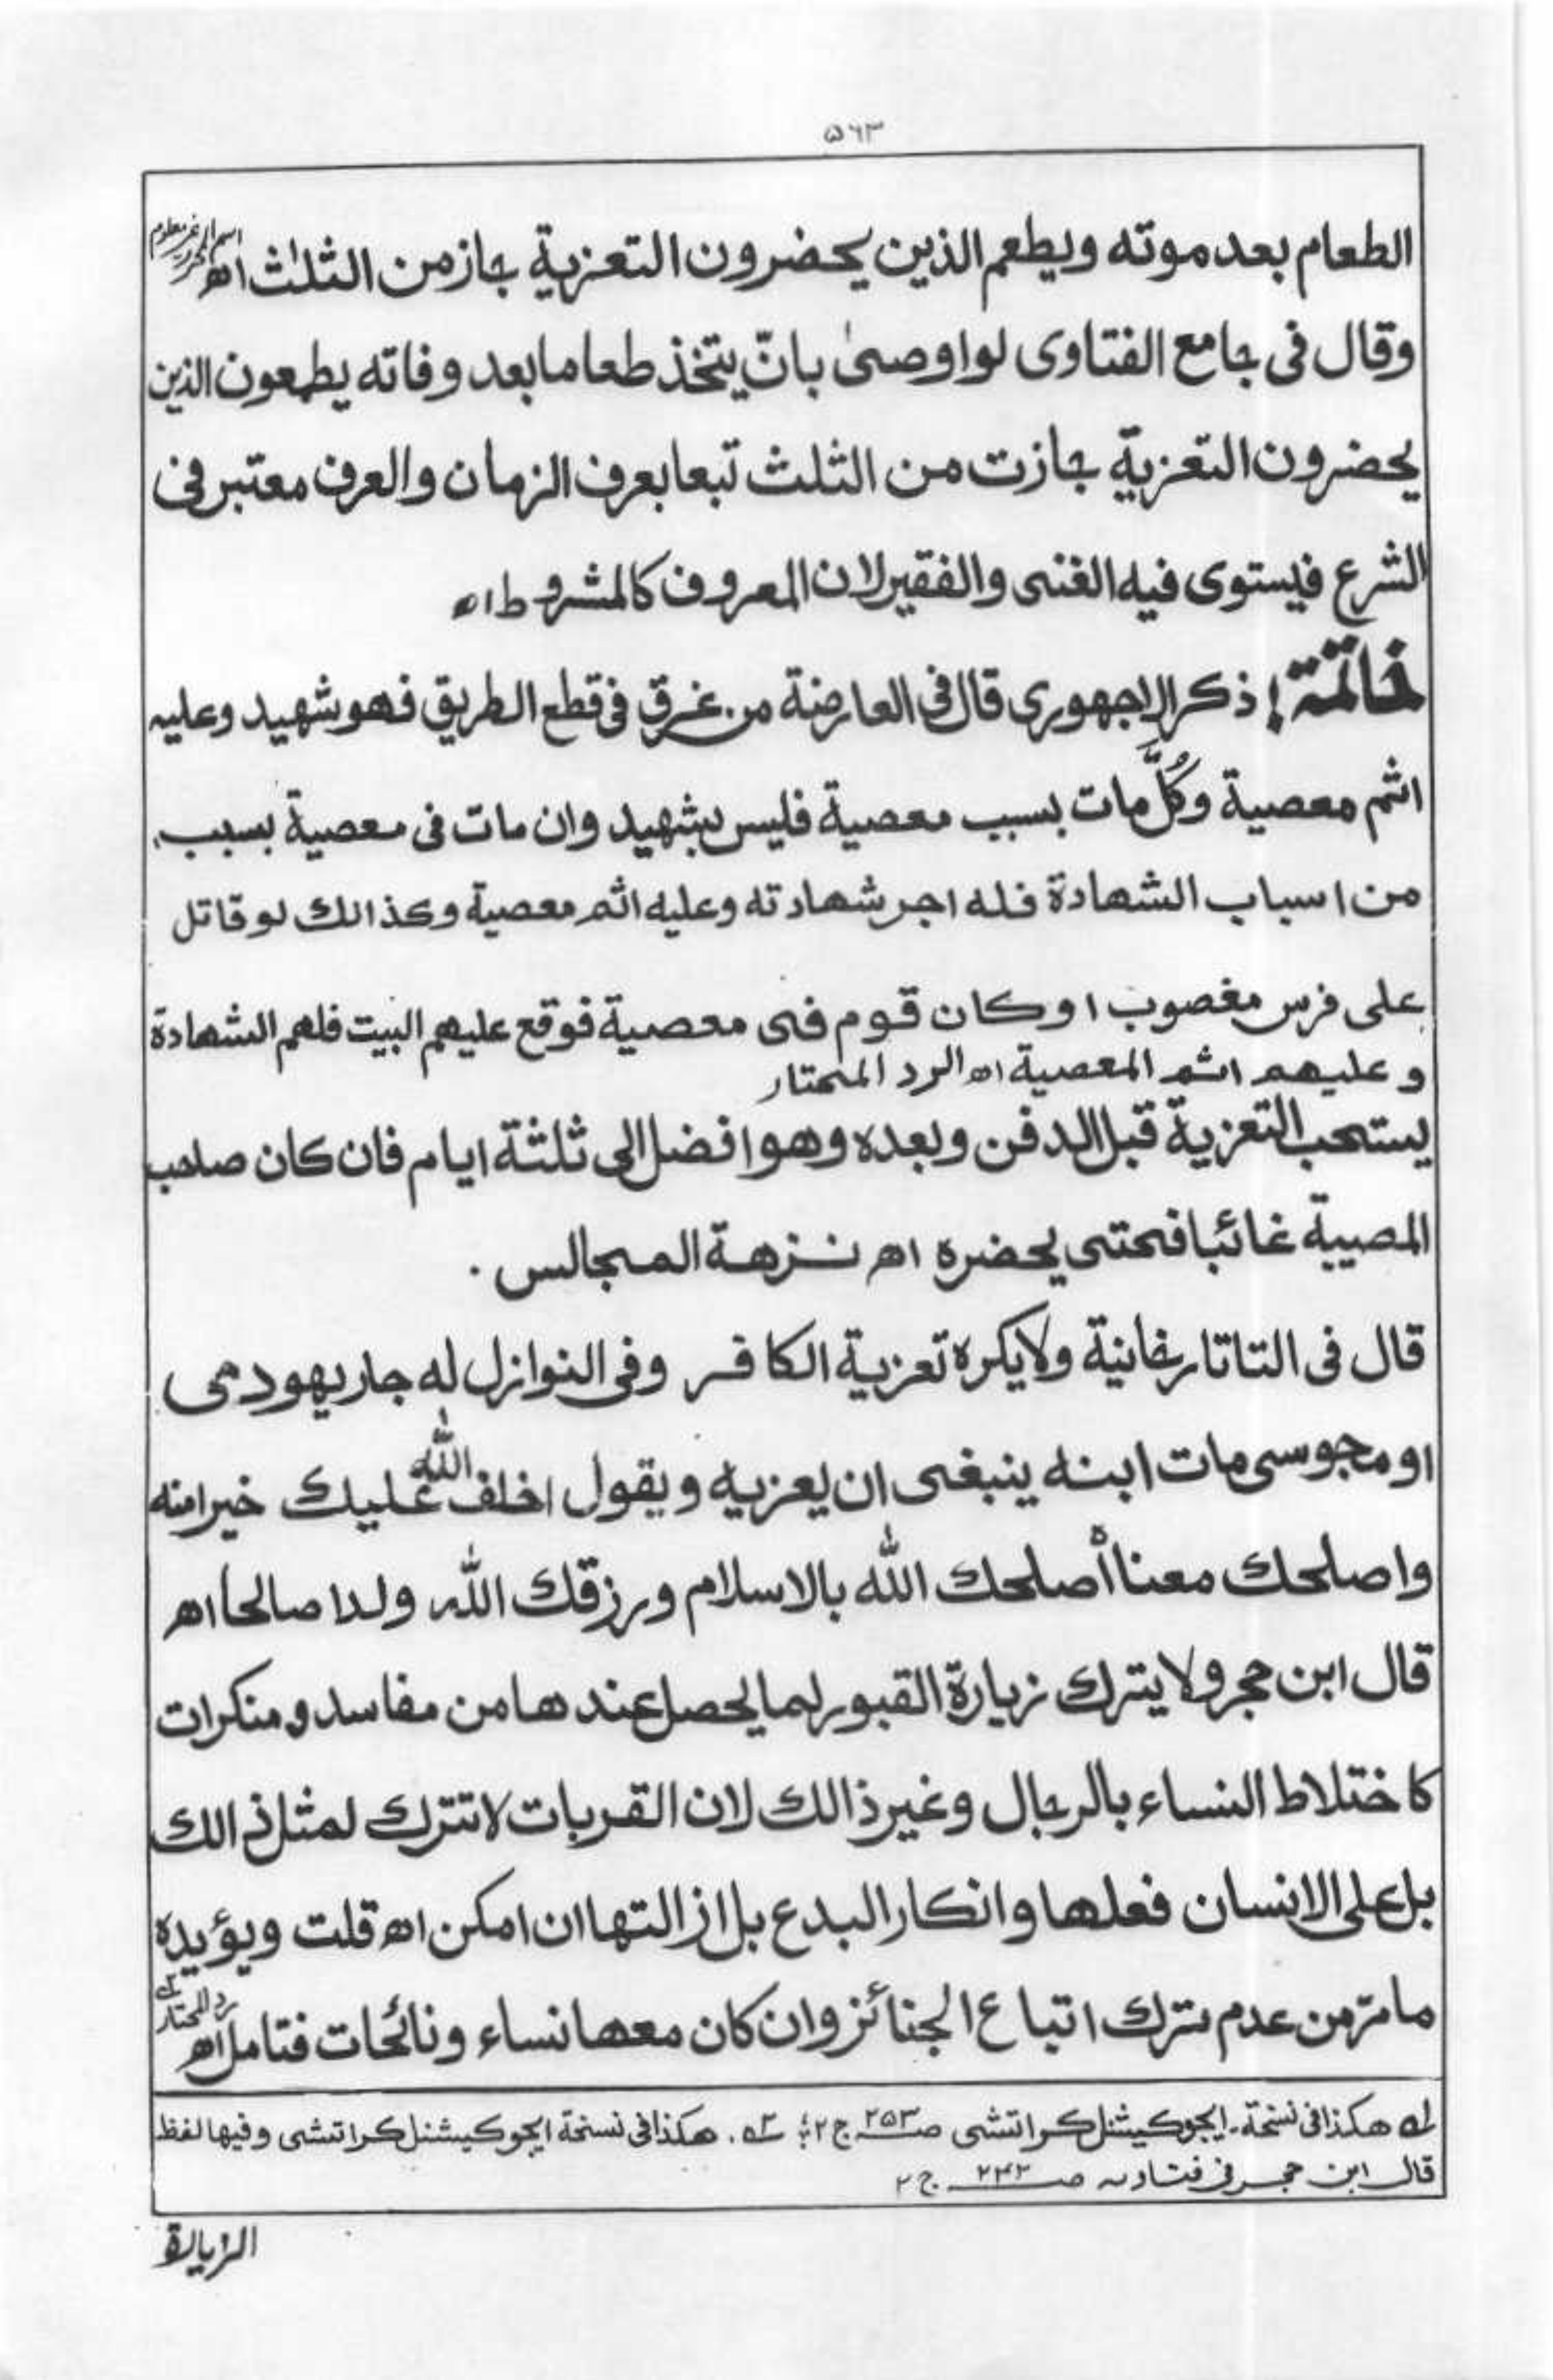 ۵۶۳
الطعام بعد موته ويطعم الذين يحضرون التعزية جاز من الثلث اھ اسم المحرر غير معلوم
وقال فى جامع الفتاوى لو اوصىٰ بانّ يتخذ طعاما بعد وفاته يطعمون الذين
يحضرون التعزية جازت من الثلث تبعا بعرف الزمان والعرف معتبر فى
الشرع فيستوى فيه الغنى والفقير لان المعروف كالمشروط اھ
خاتمة! ذكر الاجهورى قال فى العارضة من غرق فى قطع الطريق فهو شهيد وعليه
اثم معصية وكُلُّ مات بسبب معصية فليس بشهيد وان مات فى معصية بسبب
من اسباب الشهادة فله اجر شهادته وعليه اثم معصية وكذالك لو قاتل
على فرس مغصوب او كان قوم فى معصية فوقع عليهم البيت فلهم الشهادة
وعليهم اثم المعصية اھ الرد المحتار
يستحب التعزية قبل الدفن وبعده وهو افضل الى ثلثة ايام فان كان صاحب
المصيبة غائبا فحتى يحضره اھ نزهة المجالس .
قال فى التاتارخانية ولا يكره تعزية الكافر وفى النوازل له جار يهودى
او مجوسى مات ابنه ينبغى ان يعزيه ويقول اخلف الله عليك خيرا منه
واصلحك معناه أصلحك الله بالاسلام ورزقك الله ولدا صالحا اھ
قال ابن حجر ولا يترك زيارة القبور لما يحصل عندها من مفاسد ومنكرات
كاختلاط النساء بالرجال وغير ذالك لان القربات لا تترك لمثل ذالك
بل على الانسان فعلها وانكار البدع بل ازالتها ان امكن اھ قلت ويؤيده
ما مرّ من عدم ترك اتباع الجنائز وان كان معها نساء ونائحات فتامل اھ رد المحتار
لہ هكذا فى نسخة۔ ايجوكيشنل كراتشى صـ ۲۵۳ ج ۲ ؛ ۲ہ . هكذا فى نسخة ايجوكيشنل كراتشى وفيها لفظ
قال ابن حجر فى فتاوىہ صـ ۲۴۲ ج ۲
الزيارة